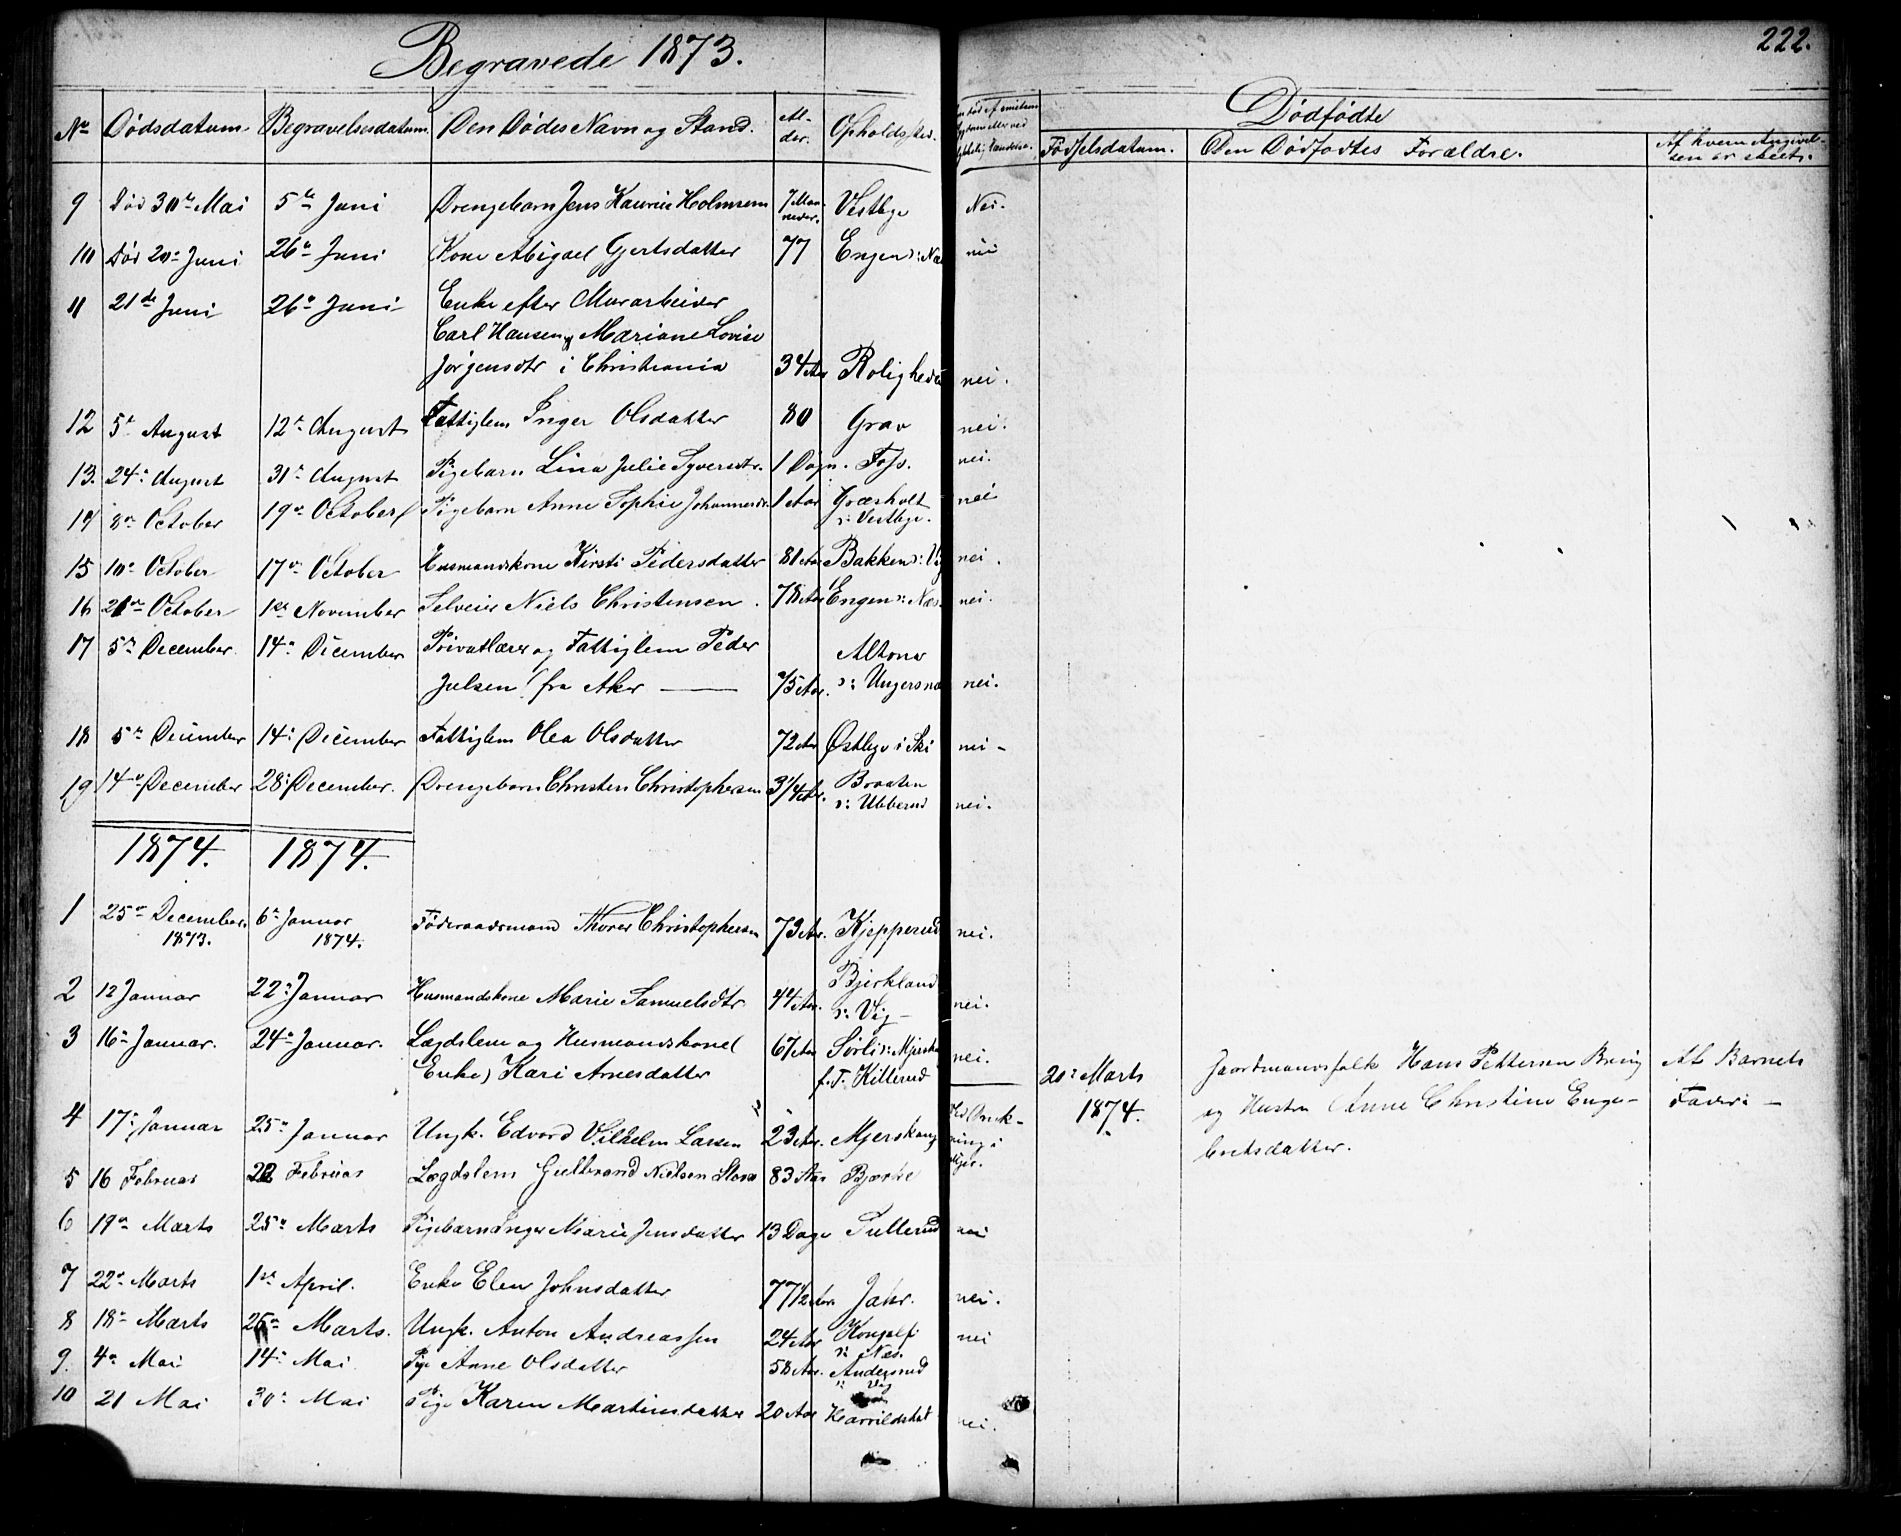 Begravede 1873.
222.
No Dødsdatum. Begravelsesdatum. Den Dødes Navn og Stand. Al-der. Opholdssted.
Dødfødte
Fødselsdatum. Den Dødfødtes Forældre. Af hvem Angivel-sen er skeet.
9 Død 30te Mai 5te Juni Drengebarn Jens Holmsen 7 Maaneder. Vestbye Nei.
10 Død 20de Juni 26de Juni Kone Abigael Gjertsdatter 77 Engen nei
11 21de Juni 26de Juni Enke efter Murarbeider
Carl Hansen, Mariane Lovise
Jørgensdtr i Christiania 34 Aar Roligheden nei.
12 5te August 12te August Fattiglem Inger Olsdatter 80 Grav nei.
13. 24de August 31te August Pigebarn Lina Julie Syversdtr. 1 Døgn. Foss. nei.
14 8de October 19de October Pigebarn Anne Sophie Johannesdr 1 Aar Græsholt nei
Vestbye.
15 10de October 17de October Husmandskone Kirsti Pedersdatter 81 Aar Bakken nei.
16 October 1ste November Selveier Niels Christensen. 78 Aar Engen Næs. nei.
17 5te December 14de December Privatlærer og Fattiglem Peder Altona
Julsen fra Aker — 75 Aar. nei.
18 5te December 14de December Fattiglem Olea Olsdatter 72 Aar Østbye i Ski nei -
19 14de December 28de December. Drengebarn Christen Christophersen 3/4 Aar. Braaten
Ubberud nei.
1874. 1874.
1 25de December 1873. 6te Januar 1874. Føderaadsmand Thorer Christophersen 73 Aar. Kjepperud nei.
2 12 Januar 22de Januar Husmandskone Marie Samuelsdtr 44 Aar. Bjerkland
Vig - nei.
3 16de Januar. 24de Januar. Lægdslem og Husmandskone(
Enke) Kari Arnesdatter 67 Aar Sørli
f. T. Killerud nei.
20de Marts
1874.
Gaardmandsfolk Hans Pettersen Bring
og Hustru Anne Christine Enge-
bretsdatter.
Af Barnets
Fader. -
4 17de Januar 25de Januar Ungk. Edvard Vilhelm Larsen 23 Aar. Mjerskaug
5 16 Februar 22 Februar Lægdslem Gulbrand Nielsen 83 Aar Bjærke
6 19de Marts 25de Marts Pigebarn Inger Marie Jensdatter 13 Dage Tullerud nei
7 22de Marts 1ste April. Enke Elen Johnsdatter 77 1/2 Aar Jahr. nei.
8 18de Marts 25de Marts. Ungk. Anton Andreassen 24 Aar
Næs. nei
9. 4de Mai 14de Mai Pige Anne Olsdatter 58 Aar. Andersrud
10 21 Mai 30te Mai Pige Karen Martinsdatter 20 Aar nei.